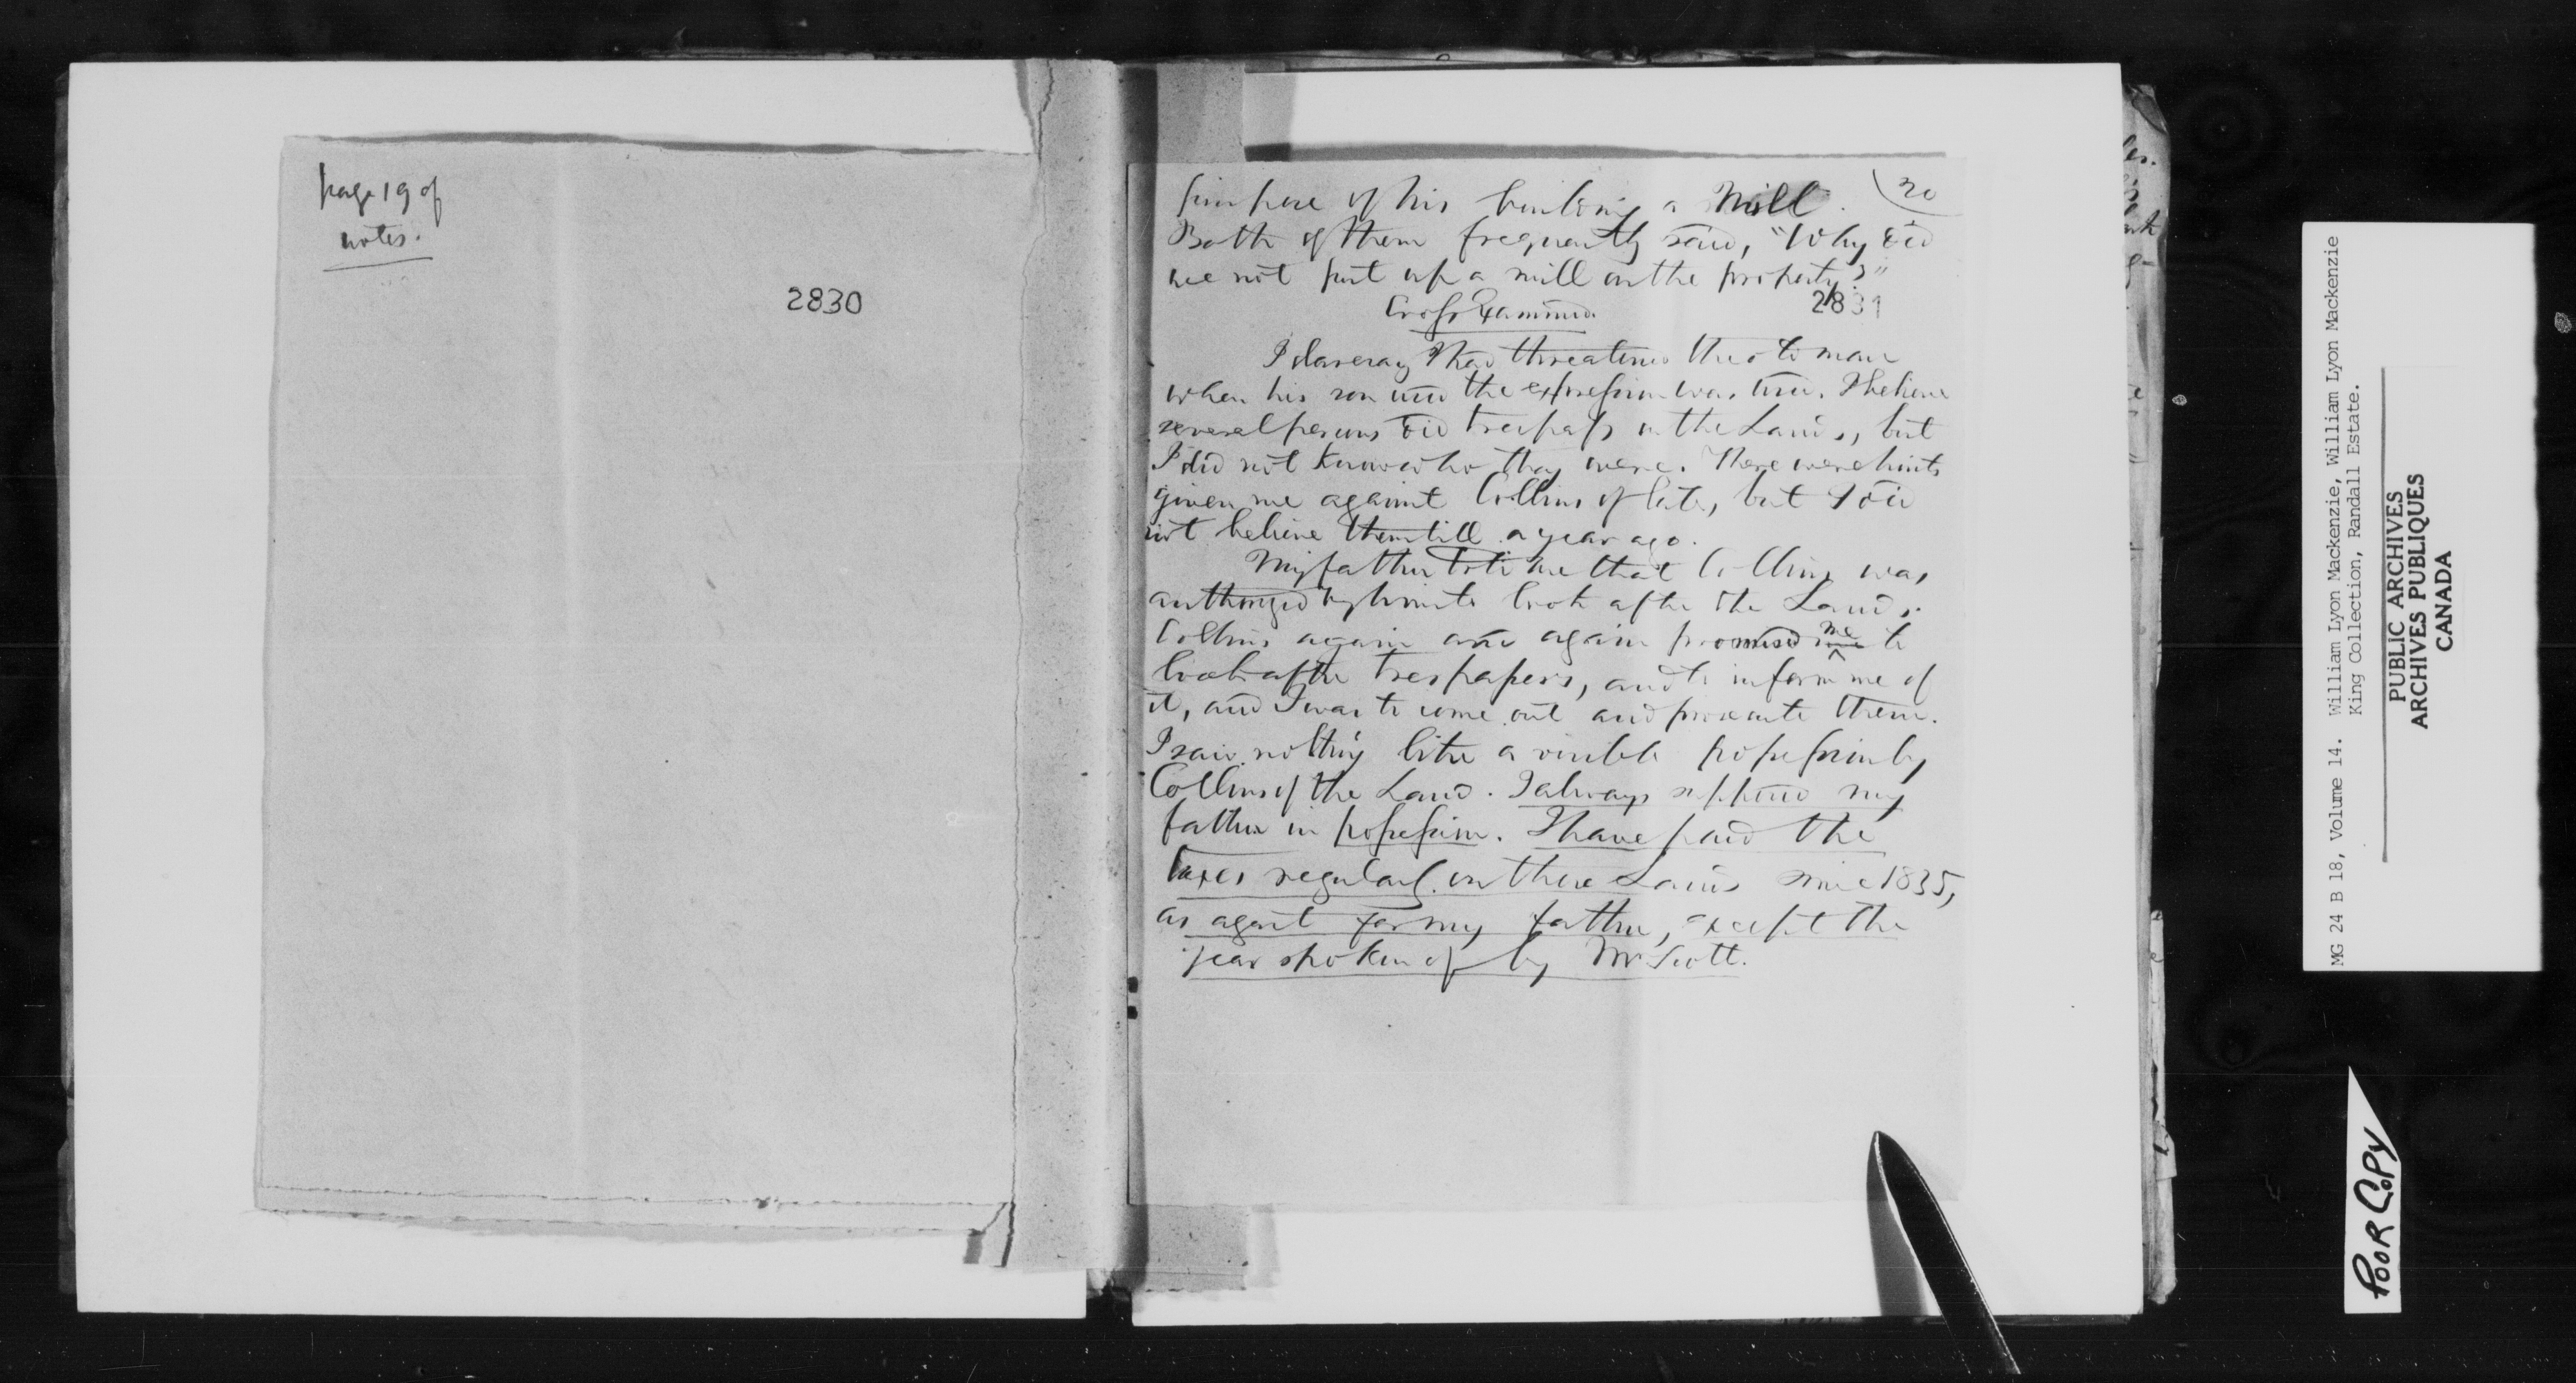 page 19 of
notes.
2830
20
purpose of his building a Mill.
Both of them frequently said, "Why did
we not put up a mill on the property?"
2831
Cross Examined
I daresay I had threatened the old man
when his son used the expression was used. I believe
several persons did trespass on the Lands, but
I did not know who they were. There were hints
given me against Collins of late, but I did
not believe them till a year ago.
My father told me that Collins was
authorized by him to look after the Lands.
Collins again and again promised me me to
look after trespassers, and to inform me of
it, and I was to come out and prosecute them.
I saw nothing like a visible possession by
Collins of the Land. I always supposed my
father in possession. I have paid the
taxes regularly on these Lands since 1835,
as agent for my father, except the
year spoken of by Mr Scott.
MG 24 B 18, Volume 14. William Lyon Mackenzie, William Lyon Mackenzie
King Collection, Randall Estate.
PUBLIC ARCHIVES
ARCHIVES PUBLIQUES
CANADA
POOR COPY